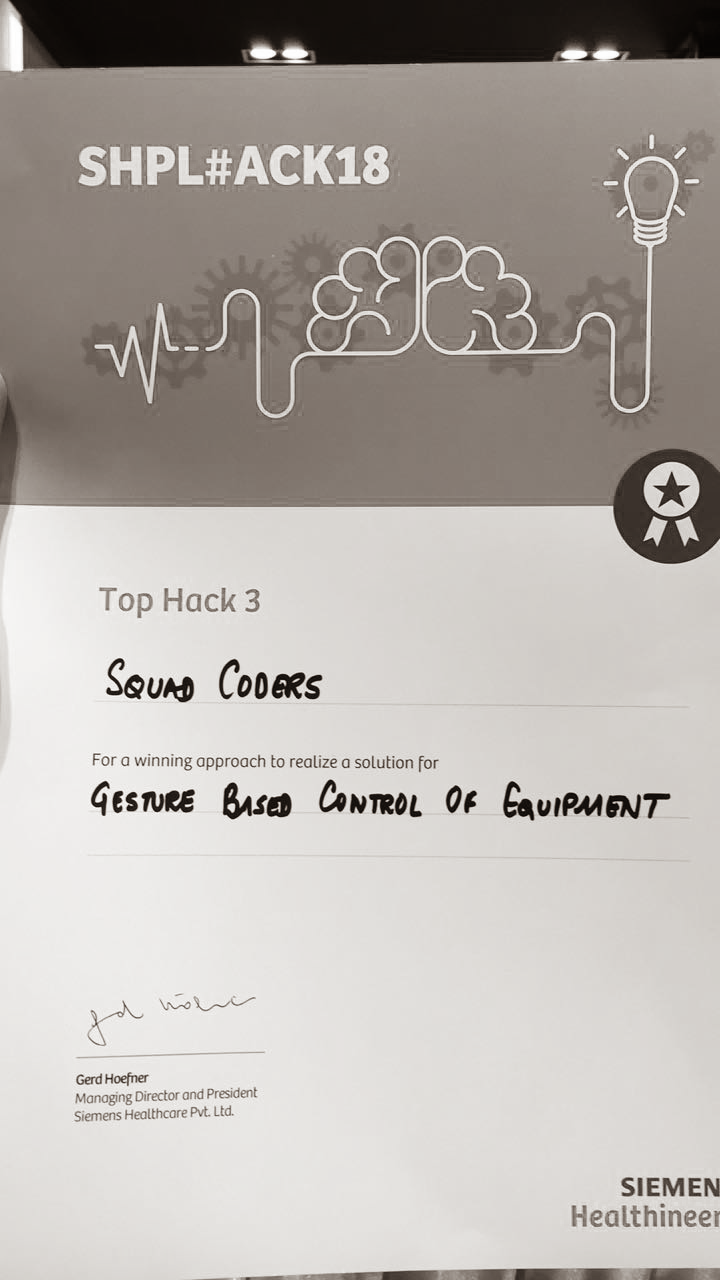 SHPL#ACK18
Top Hack 3
SQUAD CODERS
For a winning approach to realize a solution for
GESTURE BASED CONTROL OF EQUIPMENT
Gerd Hoefner
Managing Director and President
Siemens Healthcare Pvt. Ltd.
SIEMEN
Healthineer